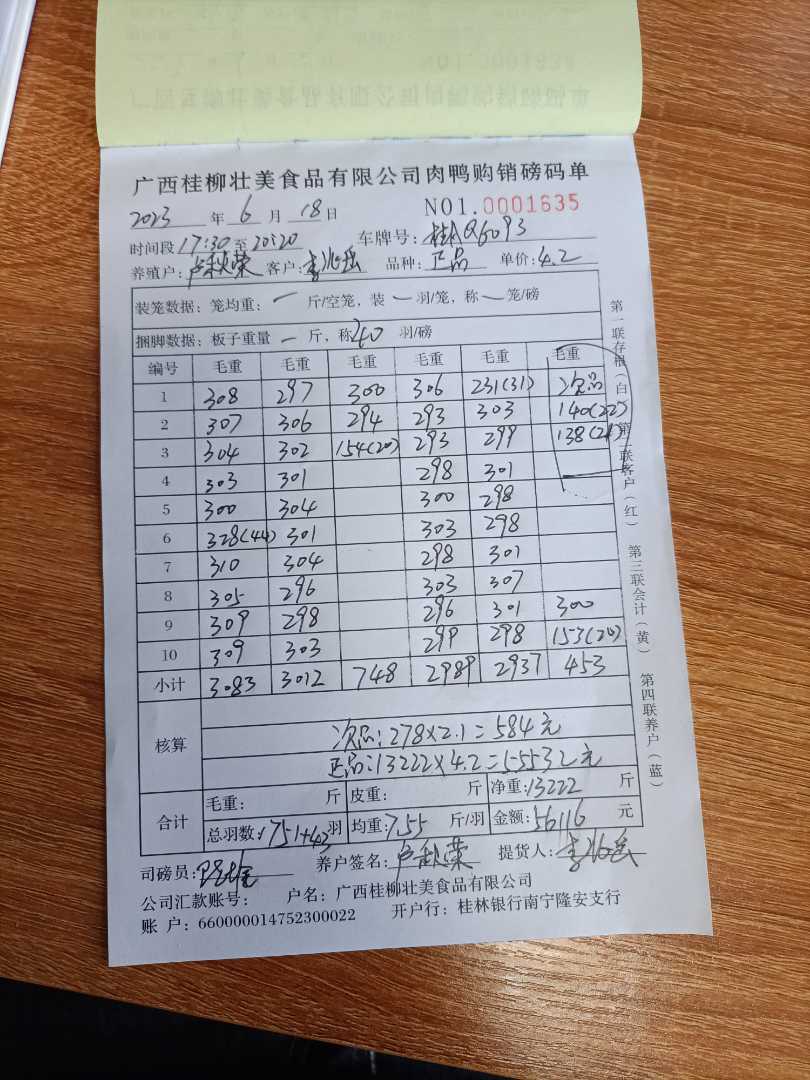 广西桂柳壮美食品有限公司肉鸭购销磅码单
2023 年 6 月 18 日 NO1.0001635
时间段 17:30 至 20:20 车牌号: 桂AQ6093
养殖户: 卢秋荣 客户: 李兆岳 品种: 正品 单价: 4.2
装笼数据: 笼均重: 一 斤/空笼, 装 一 羽/笼, 称 一 笼/磅
捆脚数据: 板子重量 一 斤, 称 40 羽/磅
编号 毛重 毛重 毛重 毛重 毛重 毛重
1 308 297 300 306 231(31) 次品
2 307 306 294 293 303 140(22)
3 304 302 154(20) 293 299 138(21)
4 303 301 298 301
5 300 304 300 298
6 328(44) 301 303 298
7 310 304 298 301
8 305 296 303 307
9 309 298 296 301 300
10 309 303 299 298 153(20)
小计 3083 3012 748 2989 2937 453
核算
次品: 278×2.1=584元
正品: 13222×4.2=55532元
合计 毛重: 斤 皮重: 斤 净重: 13222 斤
总羽数: 1751+43 羽 均重: 7.55 斤/羽 金额: 56116 元
司磅员: 养户签名: 卢秋荣 提货人: 李兆岳
公司汇款账号: 户名: 广西桂柳壮美食品有限公司
账 户: 660000014752300022 开户行: 桂林银行南宁隆安支行
第一联存根(白) 第二联客户(红) 第三联会计(黄) 第四联养户(蓝)